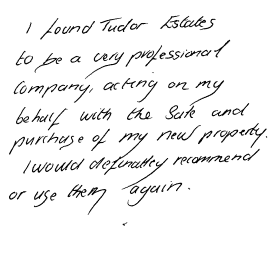 I found Tudor Estates
to be a very professional
Company, acting on my
behalf with the Sale and
purchase of my new property.
I would definatley recommend
or use them again.